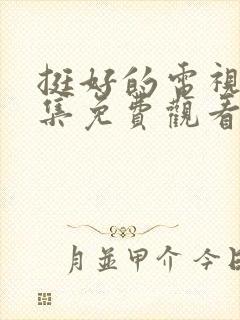 挺好的電視
集免費觀看
月並甲介 今日